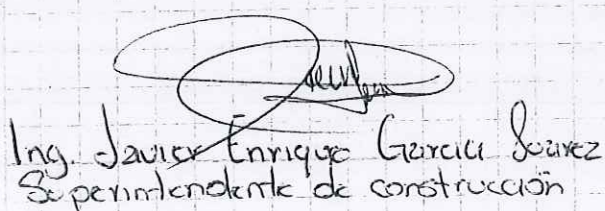 Ing. Javier Enrique Garcia Suarez
Superintendente de construcción